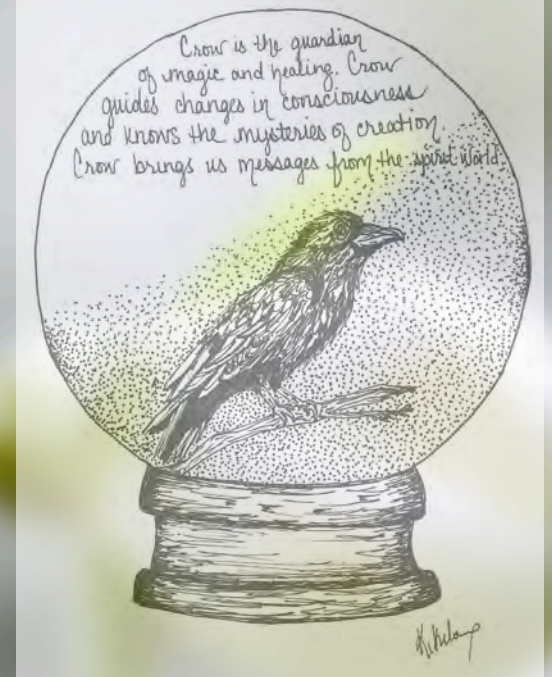 Crow is the guardian
of magic and healing. Crow
guides changes in consciousness
and knows the mysteries of creation.
Crow brings us messages from the spirit world.